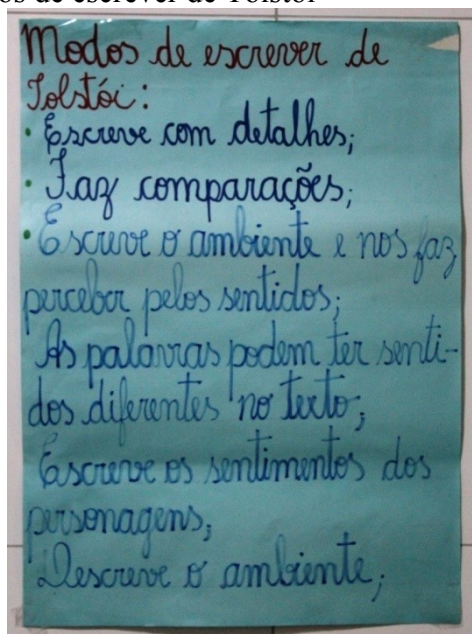 os de escrever de Tolstói
Modos de escrever de
Tolstói:
• Escreve com detalhes;
• Faz comparações;
• Escreve o ambiente e nos faz
perceber pelos sentidos;
As palavras podem ter senti-
dos diferentes no texto;
Escreve os sentimentos dos
personagens;
Descreve o ambiente;